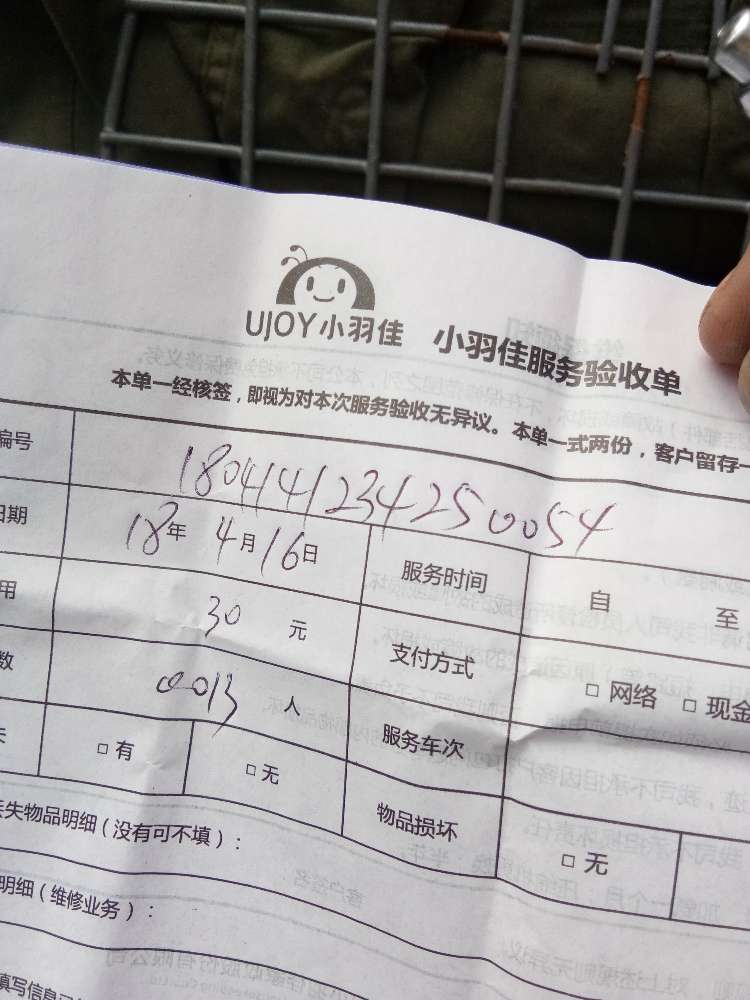 UJOY小羽佳 小羽佳服务验收单
本单一经核签，即视为对本次服务验收无异议。本单一式两份，客户留存一
编号 180414123425 0054
日期 18年 4月16日 服务时间 自 至
用 30 元 支付方式 □ 网络 □ 现金
数 0013 人 服务车次
失 □ 有 □ 无 物品损坏 □ 无
丢失物品明细（没有可不填）：
明细（维修业务）：
填写信息